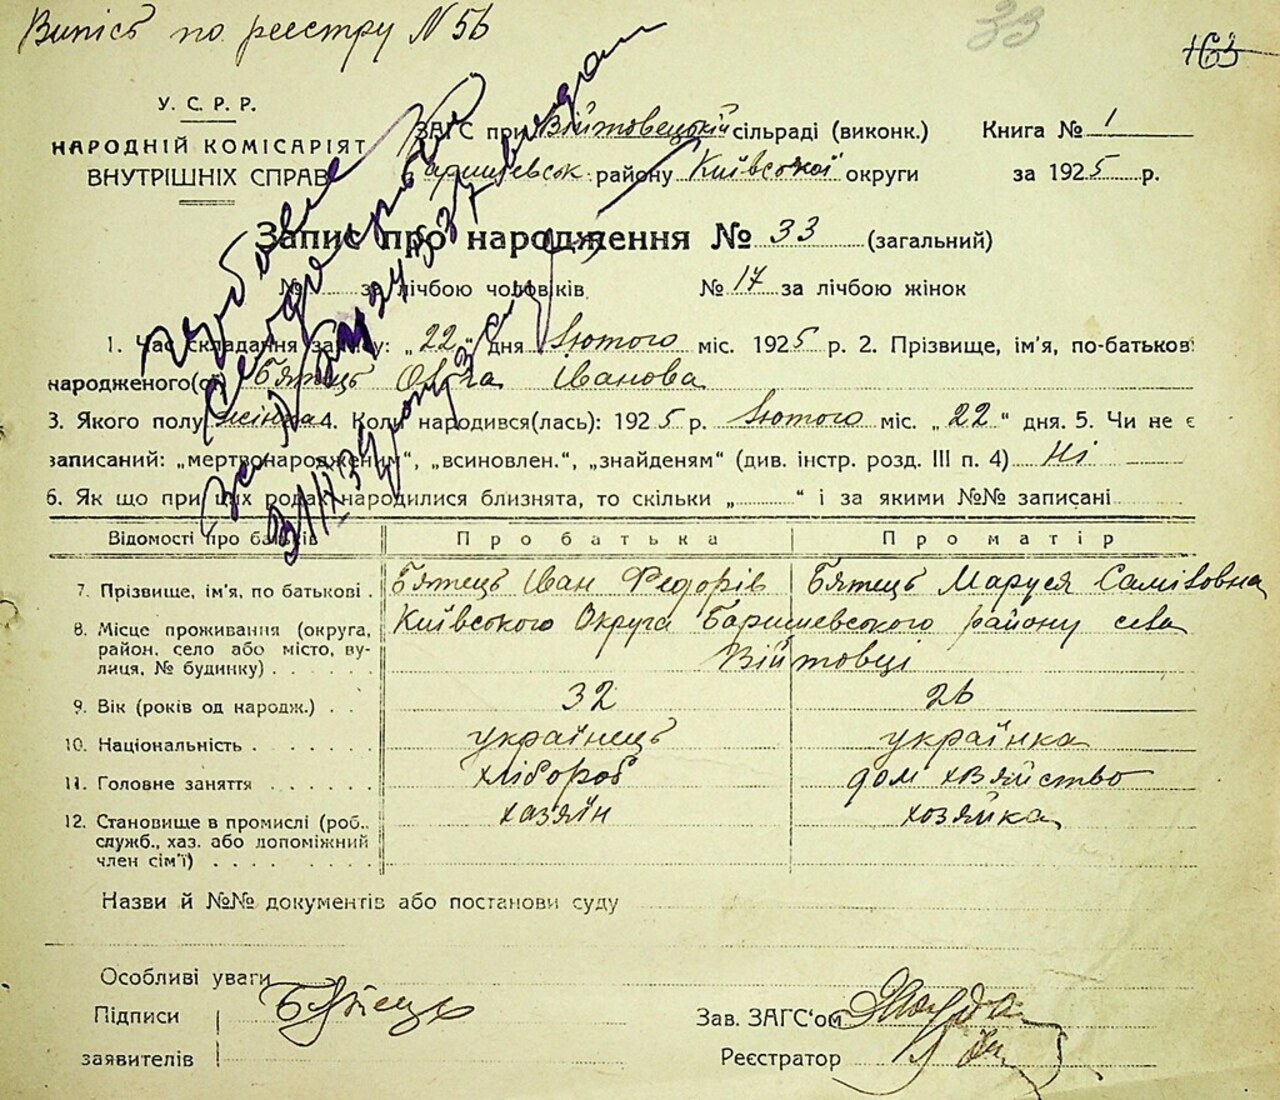 Випісь по реєстру N 56
33
163
У. С. Р. Р.
НАРОДНІЙ КОМІСАРІЯТ
ВНУТРІШНІХ СПРАВ
ЗАГС при Війтовецькій сільраді (виконк.) Книга № 1
Баришевськ. району Київської округи за 1925 р.
Запис про народження № 33 (загальний)
№ за лічбою чоловіків № 17 за лічбою жінок
1. Час складання запису: „22“ дня Лютого міс. 1925 р. 2. Прізвище, ім'я, по-батькові
народженого(ої) Бятець Ольга Іванова
3. Якого полу жінка 4. Коли народився(лась): 1925 р. Лютого міс. „22“ дня. 5. Чи не є
записаний: „мертвонародженим“, „всиновлен.“, „знайденям“ (див. інстр. розд. III п. 4) Ні
6. Як що при цих родах народилися близнята, то скільки „ “ і за якими №№ записані
Відомості про батьків Про батька Про матір
7. Прізвище, ім'я, по батькові . Бятець Іван Федорів Бятець Маруся Самівовна
8. Місце проживання (округа, Київського Округа Баришевського району села
район, село або місто, ву-
лиця, № будинку) . . . . . Війтовці
9. Вік (років од народж.) . . 32 26
10. Національність . . . . . . українець українка
11. Головне заняття . . . . . хлібороб дом хозяйство
12. Становище в промислі (роб., хазяїн хозяйка
служб., хаз. або допоміжний
член сім'ї) . . . . . . . .
Назви й №№ документів або постанови суду
Особливі уваги
Підписи Бятець Зав. ЗАГС'ом
заявителів Реєстратор